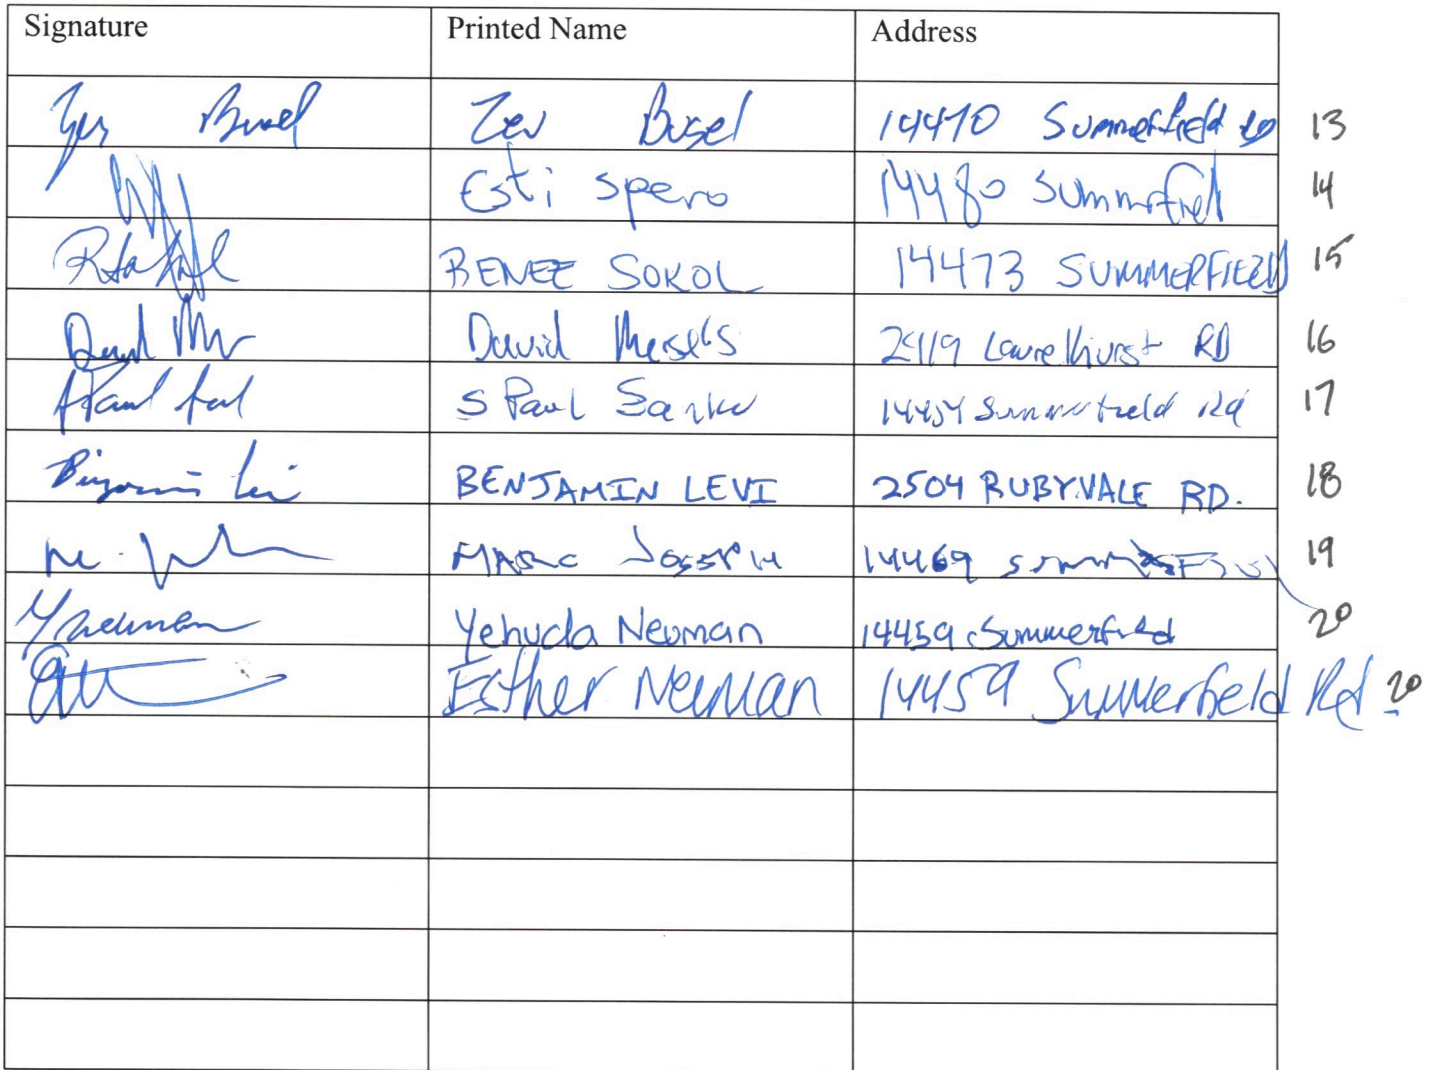 Signature Printed Name Address
Zev Busel Zev Busel 14470 Summerfield RD 13
Esti Spero 14480 Summerfiel 14
RENEE SOKOL 14473 SUMMERFIELD 15
David 2419 Laurelhurst RD 16
S Paul 14454 Summerfield Rd 17
BENJAMIN LEVI 2504 RUBYVALE RD. 18
MARC JOSEPH 14469 19
Yehuda Neuman 14459 Summerfield 20
Esther Neuman 14459 Summerfield Rd 20